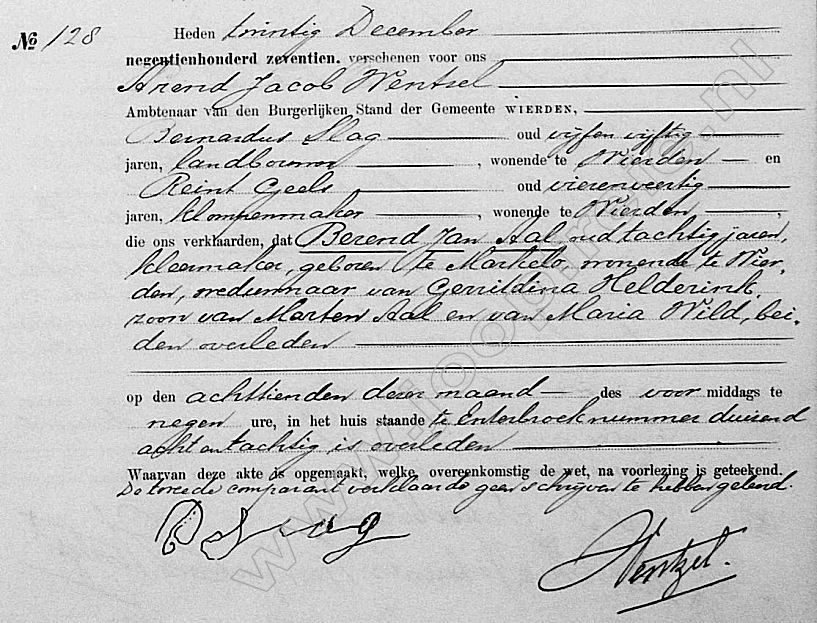 № 128 Heden twintig December
negentienhonderd zeventien, verschenen voor ons
Arend Jacob Wentzel
Ambtenaar van den Burgerlijken Stand der Gemeente WIERDEN,
Bernardus Slag oud vijfen vijftig
jaren, landbouwer, wonende te Wierden en
Reint Geels oud vierenveertig
jaren, klompenmaker, wonende te Wierden,
die ons verklaarden, dat Berend Jan Aal, oud tachtig jaren,
kleermaker, geboren te Markelo, wonende te Wier-
den, weduwnaar van Gerritdina Helderink,
zoon van Marten Aal en van Maria Wild, bei-
den overleden
op den achttienden dezer maand des voor middags te
negen ure, in het huis staande te Enterbroek nummer duizend
acht en tachtig is overleden
Waarvan deze akte is opgemaakt, welke, overeenkomstig de wet, na voorlezing is geteekend.
De tweede comparant verklaarde geen schrijven te hebben geleerd.
B Slag
Wentzel.